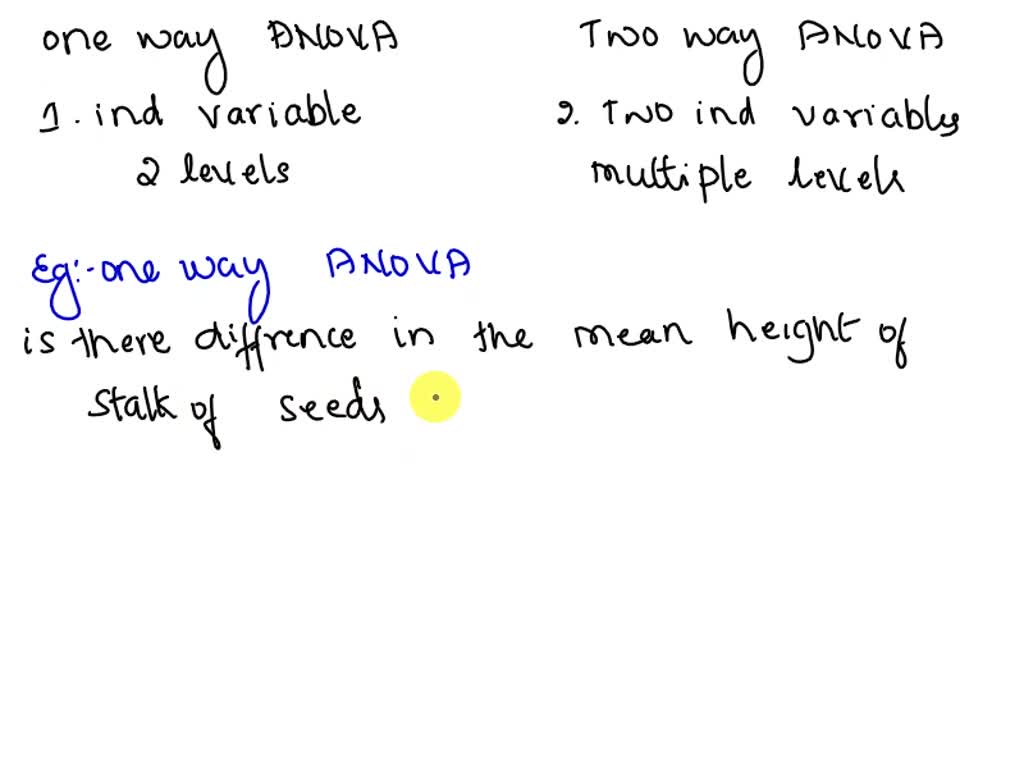 one way ANOVA
Two way ANOVA
1. ind variable
2 levels
2. Two ind variables
multiple levels
Eg:-one way ANOVA
is there diffrence in the mean height of
stalk of seeds